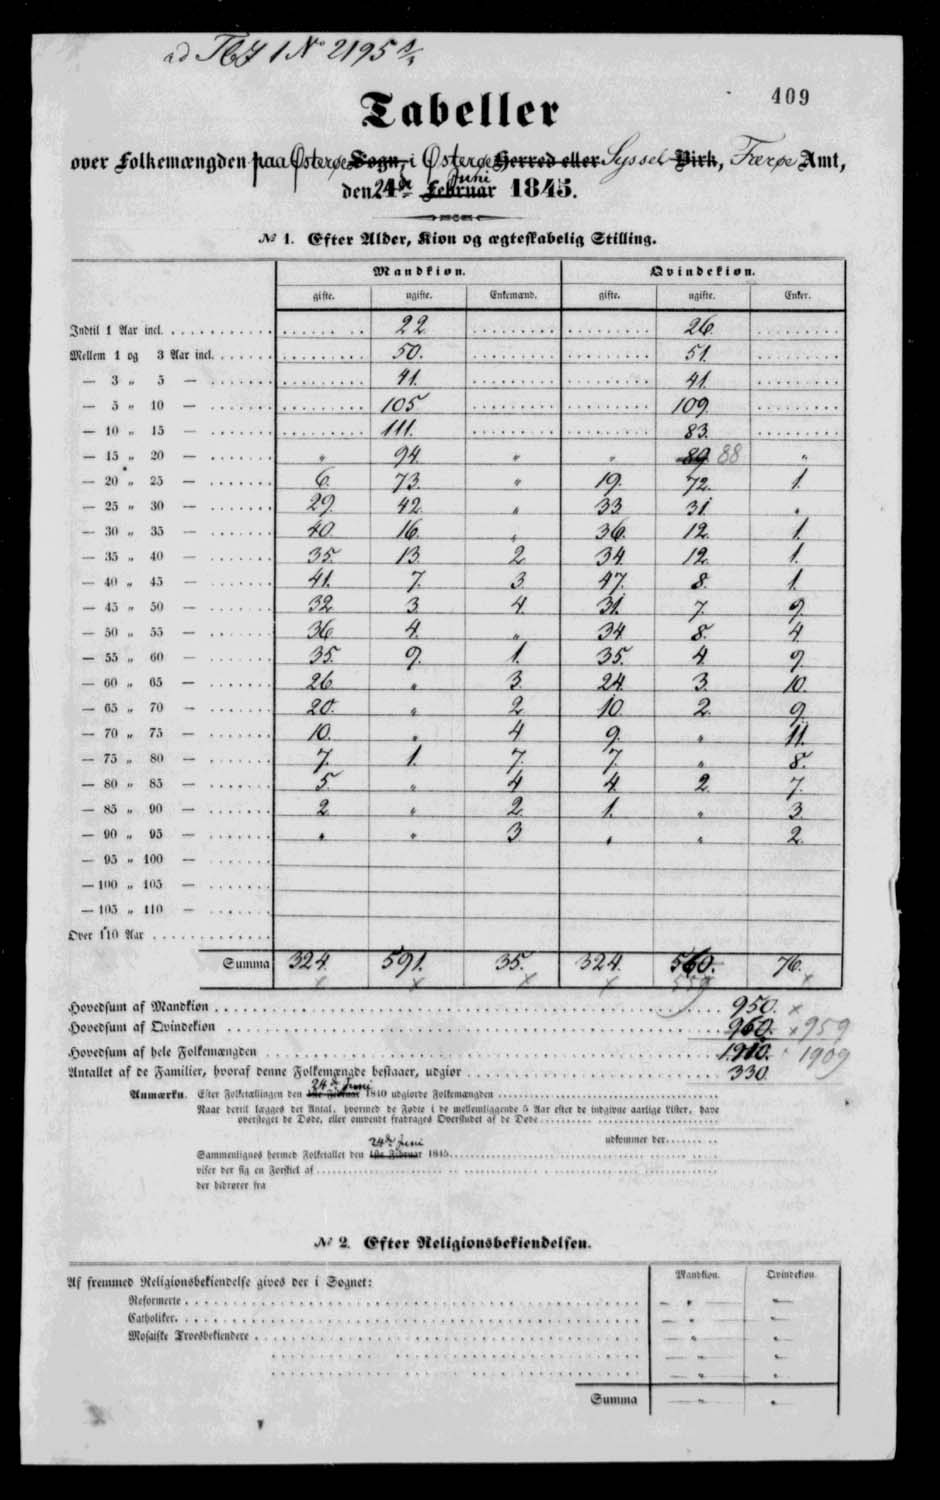 ad 1 No 2195
409
Tabeller
over Folkemængden paa Østerøe Sogn, i Østerøe Herred eller Syssel Birk, Færøe Amt,
den 24de Juni Februar 1845.
№ 1. Efter Alder, Kiøn og ægteskabelig Stilling.
Mandkiøn. Qvindekiøn.
gifte. ugifte. Enkemænd. gifte. ugifte. Enker.
Indtil 1 Aar incl. 22 26
Mellem 1 og 3 Aar incl. 50. 51.
— 3 „ 5 — 41. 41.
— 5 „ 10 — 105 109.
— 10 „ 15 — 111. 83.
— 15 „ 20 — „ 94. „ „ 89 88 „
— 20 „ 25 — 6. 73. „ 19. 72. 1.
— 25 „ 30 — 29. 42. „ 33. 31. „
— 30 „ 35 — 40. 16. „ 36. 12. 1.
— 35 „ 40 — 35. 13. 2 34. 12. 1.
— 40 „ 45 — 41. 7. 3. 47. 8. 1.
— 45 „ 50 — 32 3. 4. 31. 7. 9.
— 50 „ 55 — 36 4. „ 34 8. 4.
— 55 „ 60 — 35. 9. 1. 35. 4. 9.
— 60 „ 65 — 26. „ 3. 24. 3. 10.
— 65 „ 70 — 20. „ 2 10. 2. 9.
— 70 „ 75 — 10. „ 4 9. „ 11.
— 75 „ 80 — 7. 1. 7. 7. „ 8.
— 80 „ 85 — 5. „ 4 4. 2 7.
— 85 „ 90 — 2 „ 2 1. „ 3.
— 90 „ 95 — „ „ 3 „ „ 2.
— 95 „ 100 —
— 100 „ 105 —
— 105 „ 110 —
Over 110 Aar
Summa 324. 591. 35. 324. 560. 76.
559
Hovedsum af Mandkiøn 950. ×
Hovedsum af Qvindekiøn 960. × 959
Hovedsum af hele Folkemængden 1910. 1909
Antallet af de Familier, hvoraf denne Folkemængde bestaaer, udgiør 330.
24de Juni
Anmærkn. Efter Folketællingen den 1ste Februar 1840 udgiorde Folkemængden
Naar dertil lægges det Antal, hvormed de Fødte i de mellemliggende 5 Aar efter de indgivne aarlige Lister, have
oversteget de Døde, eller omvendt fradrages Overskudet af de Døde
udkommer der
24de Juni
Sammenlignes hermed Folketallet den 1ste Februar 1845
viser der sig en Forskiel af
der hidrører fra
№ 2. Efter Religionsbekiendelsen.
Af fremmed Religionsbekiendelse gives der i Sognet: Mandkiøn. Qvindekiøn.
Reformerte — „ — „ —
Catholiker — „ — „ —
Mosaiske Troesbekiendere — „ — „ —
— „ — „ —
— „ — „ —
Summa — „ — „ —